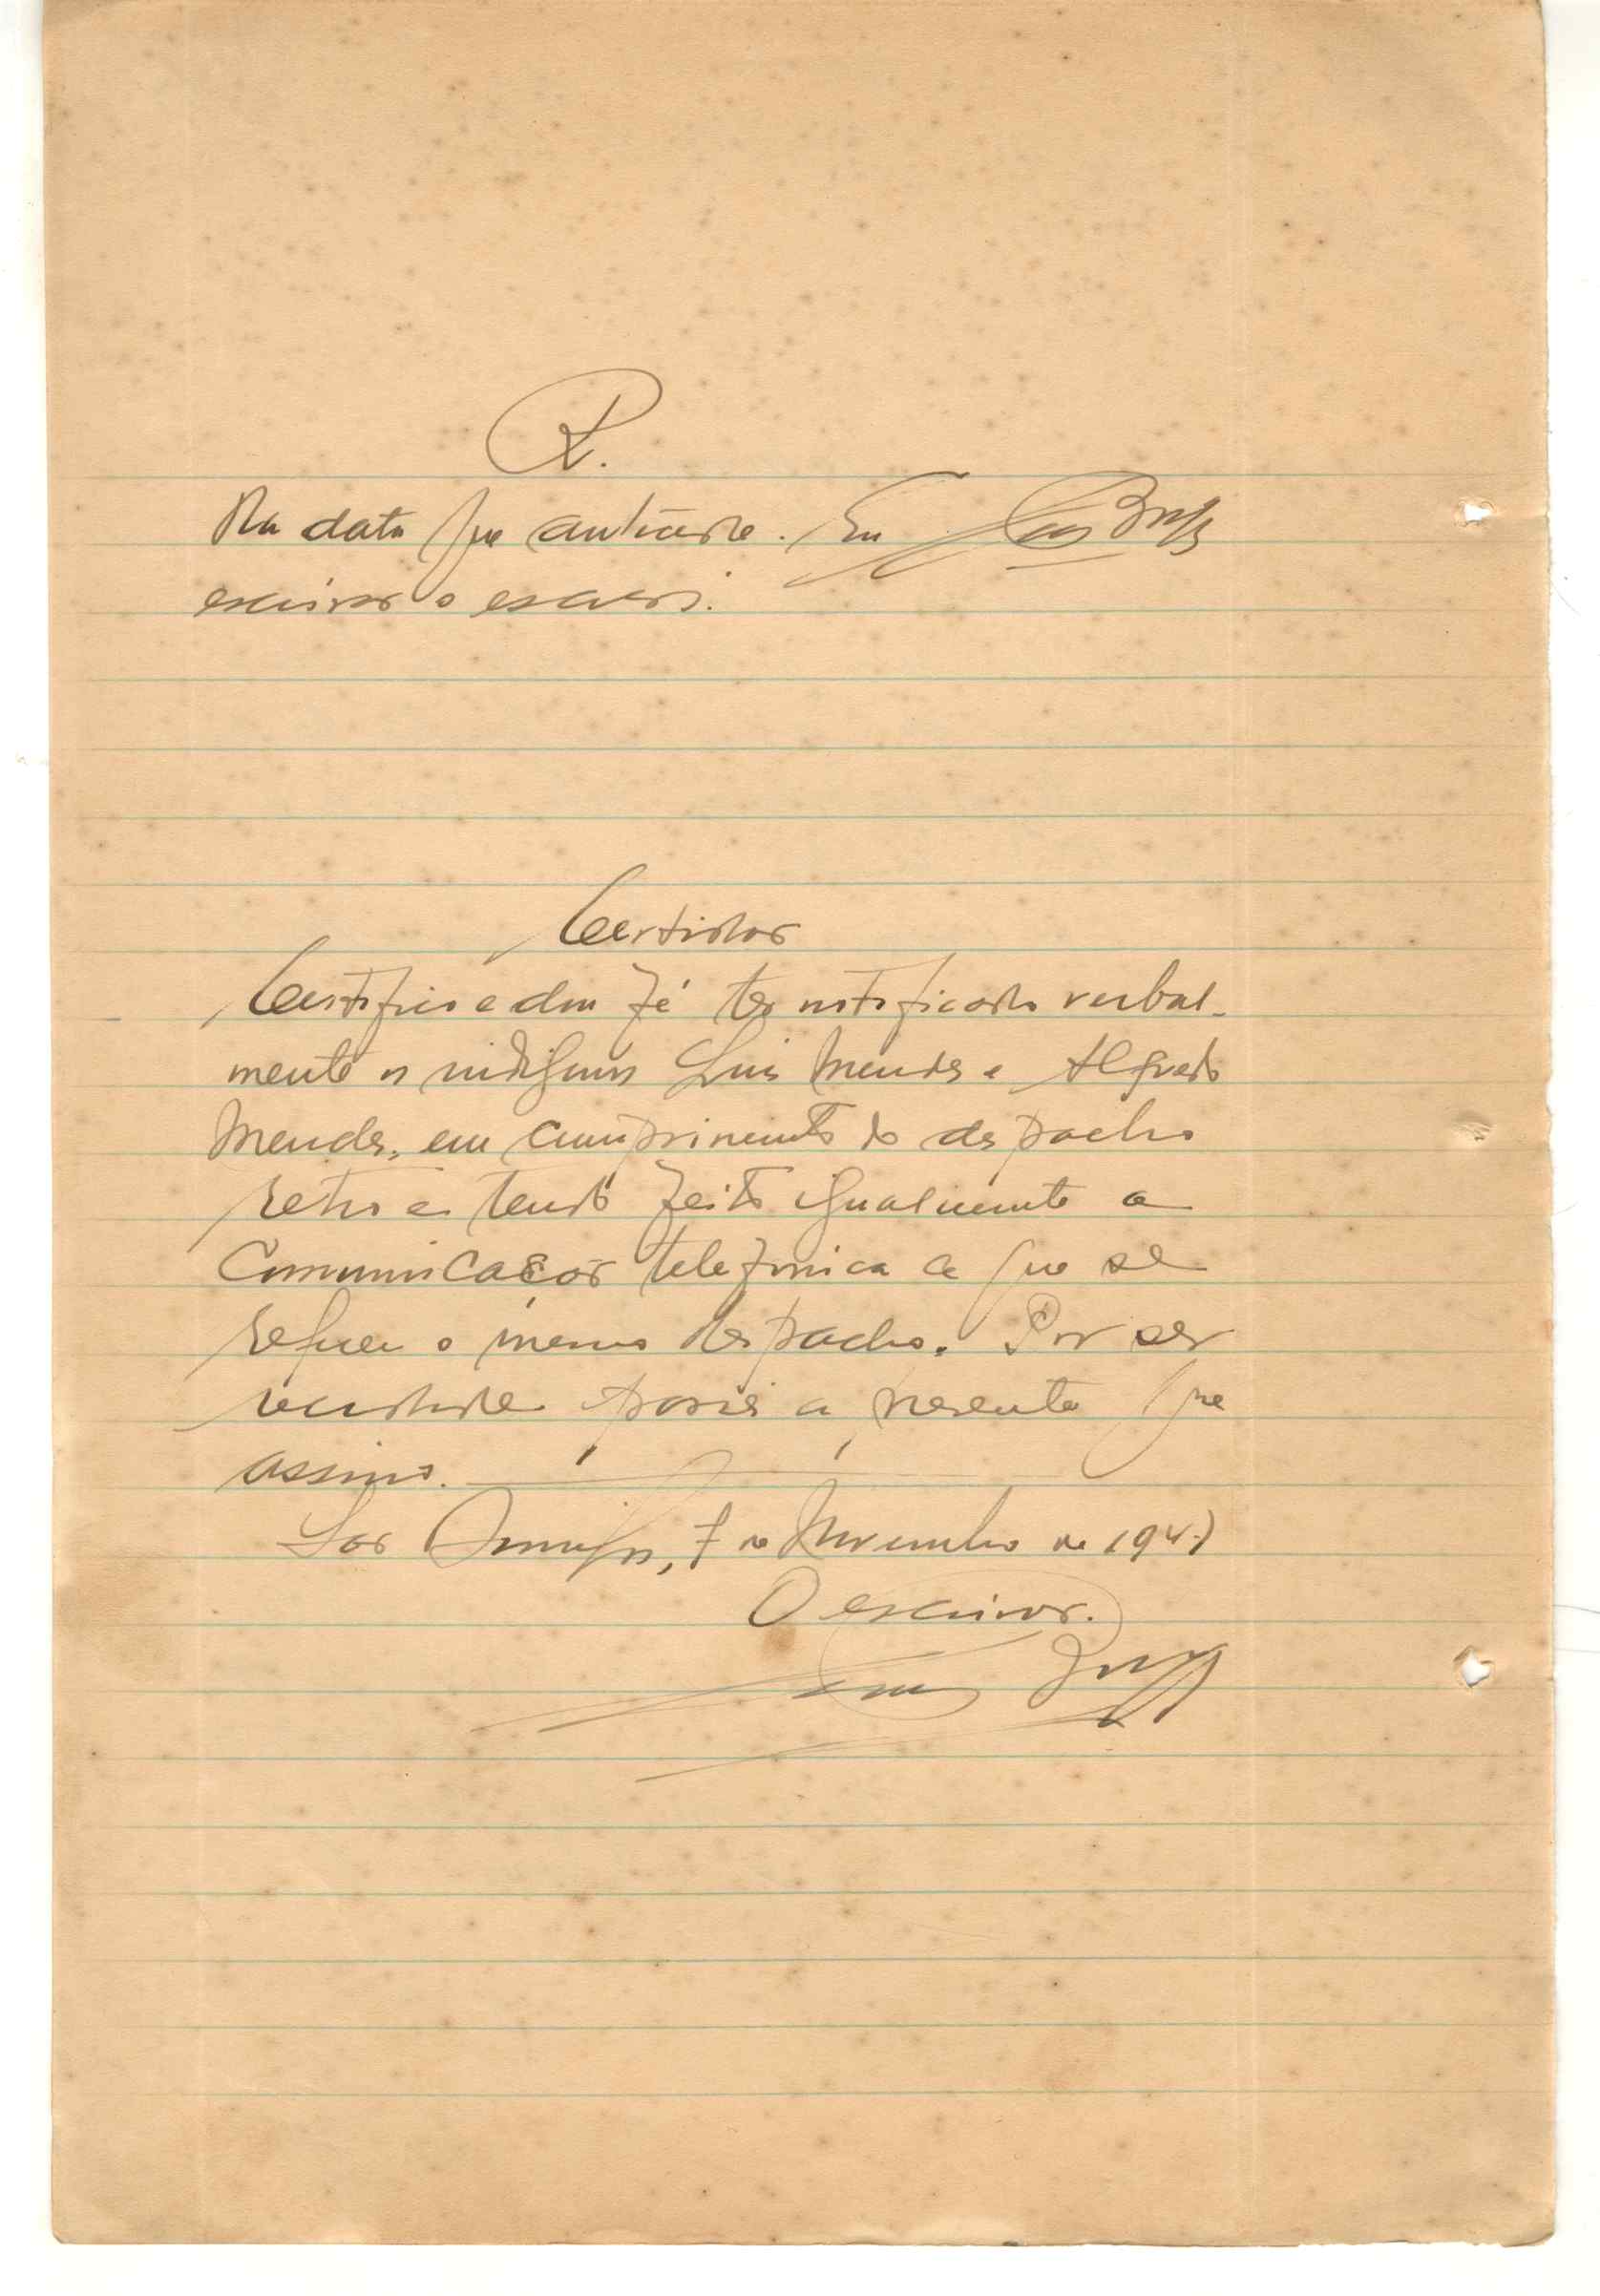 R.
Na data que antecede. Eu
escrivão o escrevi.
Certidão
Certifico e dou fé ter notificado verbal-
mente os indígenas Luis Mendes e Alfredo
Mendes, em cumprimento do despacho
retro e tendo feito igualmente a
comunicação telefónica a que se
refere o mesmo despacho. Por ser
verdade passei a presente que
assino.
São Domingos, 7 de Novembro de 1947
O escrivão.